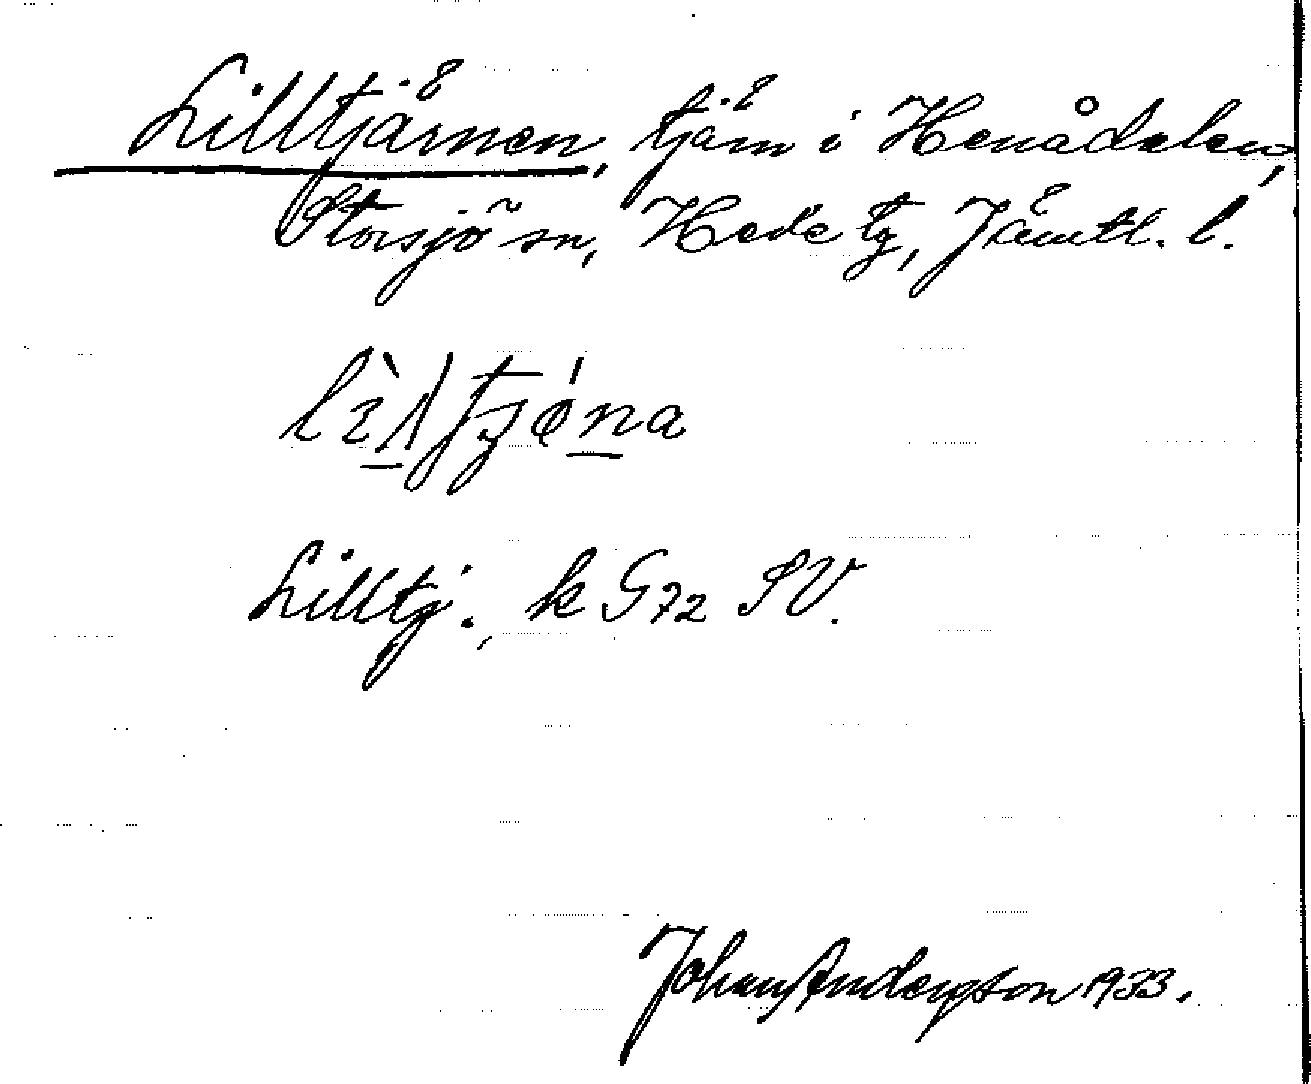 Lilltjärnen, tjärn i Henådalen,
Storsjö sn, Hede tg, Jämtl. l.
Lilltj., k G72 SV.
Johan Anderson 1933.